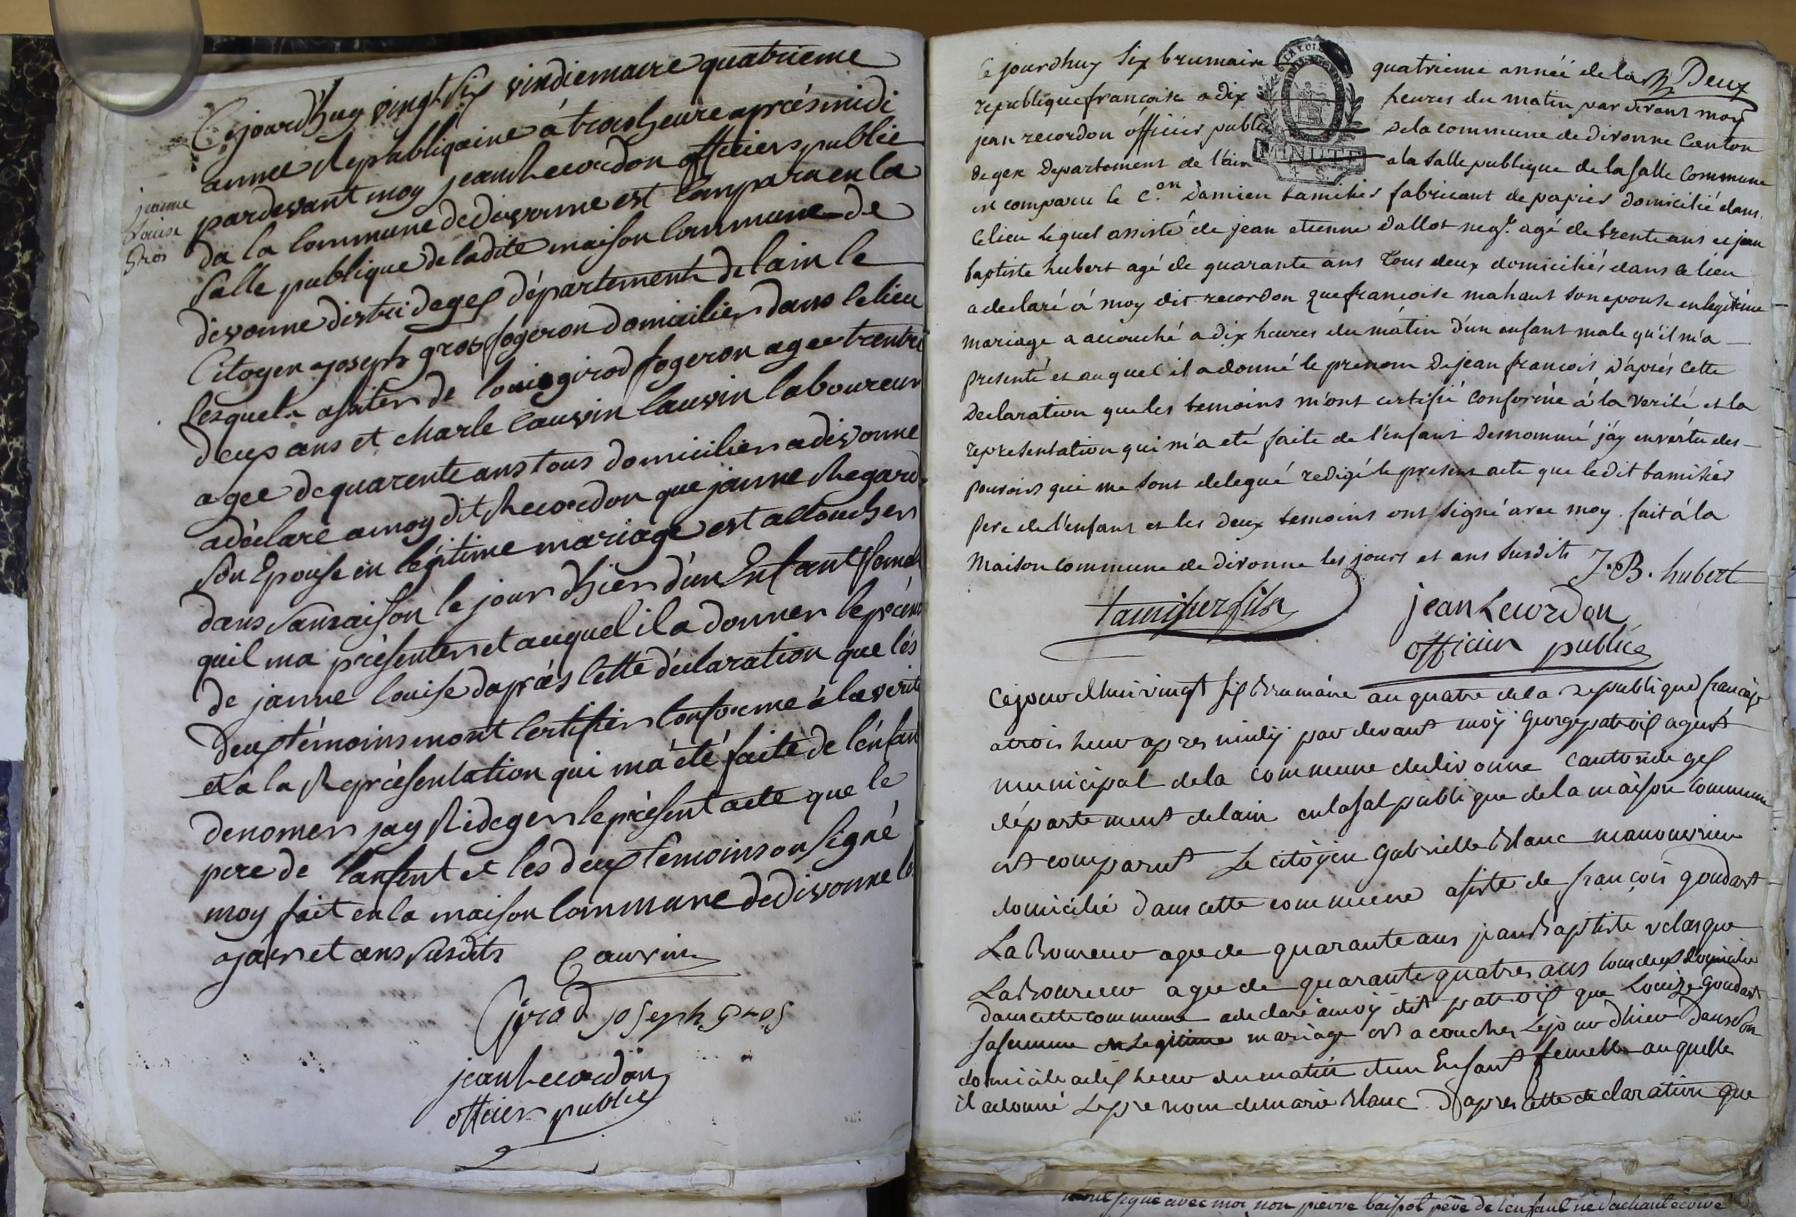 Cejourdhuy vingt six vindiemaire quatrieme
année Republiquaine á trois heure aprés midi
pardevant moy jean Recordon officier public
da la commune de divonne est Comparu en la
Salle publique de ladite maison Commune de
divonne distri de gex département de lain le
Citoyen joseph gros fogeron domicilier dans le lieu
lesquel assiter de louis girod fogeron agee trente
deux ans et charle Cauvin Cauvin laboureur
agee de quarente ans tous domicilier a divonne
a déclaré a moy dit Recordon que janne Regard
Son Epouse en légitime mariage est accoucher
dans sa maison le jour dhier d'un Enfant femel
quil ma présenter et auquel il a donner le prénom
de janne louise daprés cette déclaration que lés
deux témoins mont certifier conforme á la verité
et á la Représentation qui má été faite de l'énfan
denomer jay Rideger le présent acte que le
pere de l'anfent et les deux témoins on Signé
moy fait en la maison Commune de divonne le
ojour et ans susdits
Cauvin
girod joseph gros
jean Recordon
officier public
janne
Louise
gros
Ce jourdhuy Six brumaire quatrieme année de la
Deux
republique francoise a dix heures du matin par devant moy
jean recordon officier public de la commune de divonne Canton
de gex Departement de l'ain a la Salle publique de la Salle Commune
MINUTE
est comparu le C.en Damien tamisier fabricant de papier domicilié dans
Ce lieu Lequel assisté de jean etienne Dallot neg.t agé de trente ans et jean
baptiste hubert agé de quarante ans Tous deux domiciliés dans ce lieu
a declaré á moy dit recordon que francoise mahaut Son epouse en legitime
mariage a accouché a dix heures du mátin d'un enfant male qu'il m'a
presenté et auquel il a donné le prenom De jean francois, D'aprés Cette
Declaration que les temoins m'ont certifié Conforme á la Verité et la
representation qui m'a eté faite de l'enfant Denommé j'ay en vertu des
pouvoirs qui me sont delegué redigé le present acte que le dit tamisier
pere de l'enfant et les Deux temoins ont signé avec moy. fait á la
Maison commune de divonne les jours et ans Susdits J. B. hubert
tamisier fils
jean Recordon
officier public
Cejourdhui vingt six brumaire an quatre de la republique francaise
a trois heure apres midy par devant moÿ George patroix agent
municipal de la commune de divonne canton de gex
département de lain en la sal publique de la maison Commune
est comparut Le citoyen Gabrielle Blanc manouvrier
domicilié dans cette commune asisté de françois goudart
Laboureur age de quarante ans jean Baptiste velasque
Laboureur age de quarante quatres ans tous deux domicilie
dans cette commune a declaré a moÿ dit patroix que Louize Goudart
sa femme en Legitime mariage est acoucher Le jour dhier dans son
domicile a dix heure du matin d'un Enfant femelle auquelle
il a donné Le prenom de marie Blanc D'apres cette declaration que
mont signé avec moi non pierre baissot pére de l'enfant ne sachant écrire